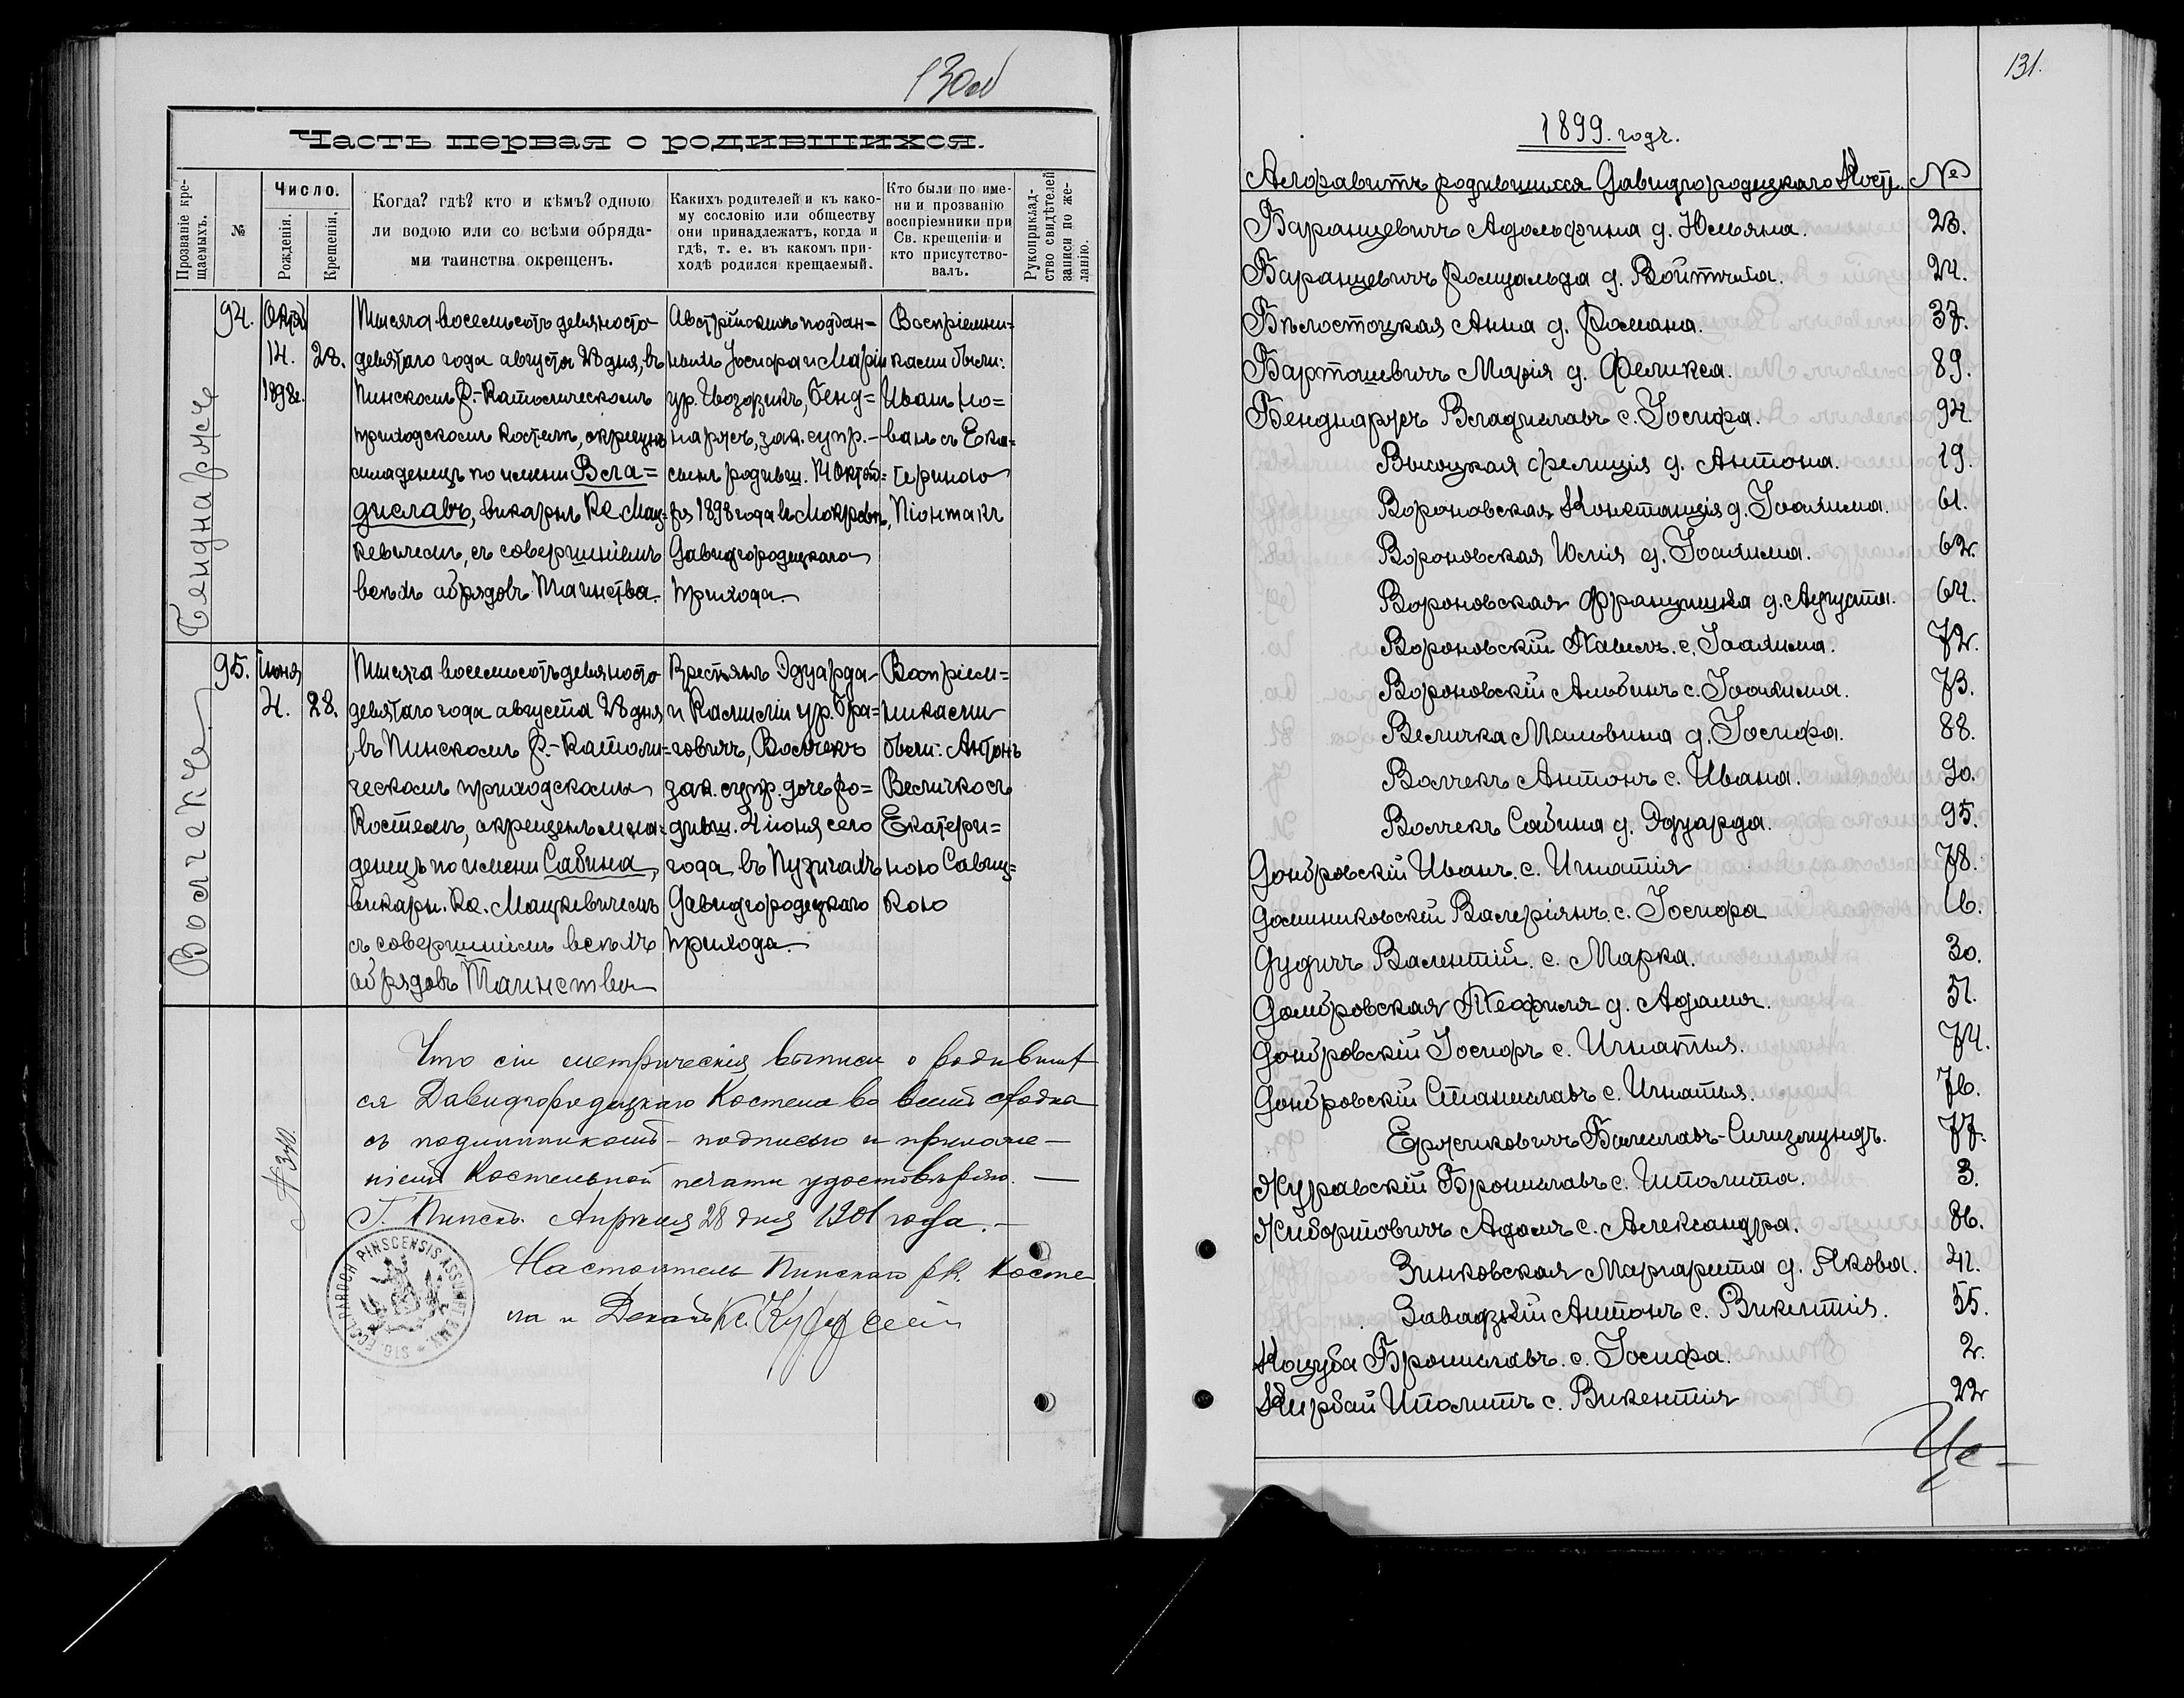 130об
Часть первая о родившихся.
Прозваніе кре-
щаемыхъ.
№
Число.
Рожденія.
Крещенія.
Когда? гдѣ? кто и кѣмъ? одною
ли водою или со всѣми обряда-
ми таинства окрещенъ.
Какихъ родителей и къ како-
му сословію или обществу
они принадлежатъ, когда и
гдѣ, т. е. въ какомъ при-
ходѣ родился крещаемый.
Кто были по име-
ни и прозванію
воспріемники при
Св. крещеніи и
кто присутство-
валъ.
Рукоприклад-
ство свидѣтелей
записи по же-
ланію.
94.
Октяб
14.
1898г.
28.
Тысяча восемьсотъ девяносто
девятаго года августа 28 дня, въ
Пинскомъ Р.-Католическомъ
приходскомъ костелѣ, окрещенъ
младенецъ по имени Вла=
диславъ, викарнъ Кс. Мац=
кевичемъ, съ совершеніемъ
всѣхъ обрядовъ Таинства.
Австрійскихъ поддан=
ныхъ Іосифа и Маріи
ур. Гвоздзикъ, Бенд=
наржъ, зак. супр.-
сынъ родивш. 14 Октяб=
ря 1898 года въ Мокровѣ,
Давидгородецкаго
прихода.
Воспріемни=
ками были:
Иванъ Но=
вакъ съ Ека=
териною
Піонтакъ
95.
Іюня
4.
28.
Волчекъ
Тысяча восемьсотъ девяносто
девятаго года августа 28 дня
, въ Пинскомъ Р.-Католи=
ческомъ приходскомъ
Костелѣ, окрещенъ мла=
денецъ по имени Сабина,
викарн. Кс. Мацкевичемъ
съ совершеніемъ всѣхъ
обрядовъ Таинства
Крестьянъ Эдуарда
и Камиліи ур. Дра=
говичъ, Волчекъ
зак. супр. дочь ро=
дивш. 4 іюня сего
года въ Пузичахъ
Давидгородецкаго
прихода.
Воспріем=
никами
были: Антонъ
Величко съ
Екатери=
ною Савиц=
кою
Что сіи метрическія выписи о родивших
ся Давидгородецкаго Костела во всемъ сходна
съ подлинникомъ - подписью и приложе-
ніемъ Костельной печати удостовѣряю. —
Г. Пинскъ. Апрѣля 28 дня 1901 года. —
Настоятель Пинскаго р.к. Косте
ла и Деканъ Кс.
SIG. ECCL. PAROCH PINSCENSIS ASSUMPT. B.M.V.
131.
1899. годъ.
Алфавитъ родившихся Давидгородецкаго Кост. №
Баранцевичъ Адольфина д. Юльяна. 23.
Баранцевичъ Ромуальда д. Войтѣха. 24.
Бѣлостоцкая Анна д. Романа. 37.
Бартошевичъ Марія д. Феликса. 89.
Бенднаржъ Владиславъ с. Іосифа. 94.
Высоцкая Фелиція д. Антона. 19.
Вороновская Констанція д. Іоахима. 61.
Вороновская Юлія д. Іоахима. 62.
Вороновская Францишка д. Августа. 64.
Вороновскій Павелъ. с. Іоахима. 72.
Вороновскій Альбинъ с. Іоахима. 73.
Величка Мальвина д. Іосифа. 88.
Волчекъ Антонъ с. Ивана. 90.
Волчекъ Сабина д. Эдуарда. 95.
Домбровскій Иванъ. с. Игнатія 78.
Домниковскій Валеріянъ. с. Іосифа 16.
Дудичъ Валентій. с. Марка. 30.
Домбровская Теофиля д. Адама. 51.
Домбровскій Іосифъ с. Игнатья. 74.
Домбровскій Станиславъ с. Игнатья. 76.
Ержиковичъ Балеславъ-Сигизмундъ. 77.
Журавскій Брониславъ с. Иполита. 3.
Жибортовичъ Адамъ с. Александра. 86.
Зинковская Маргарита д. Якова. 41.
Завадзкій Антонъ с. Викентія. 55.
Коцуба Брониславъ. с. Іосифа. 2.
Кирбай Иполитъ с. Викентія 22